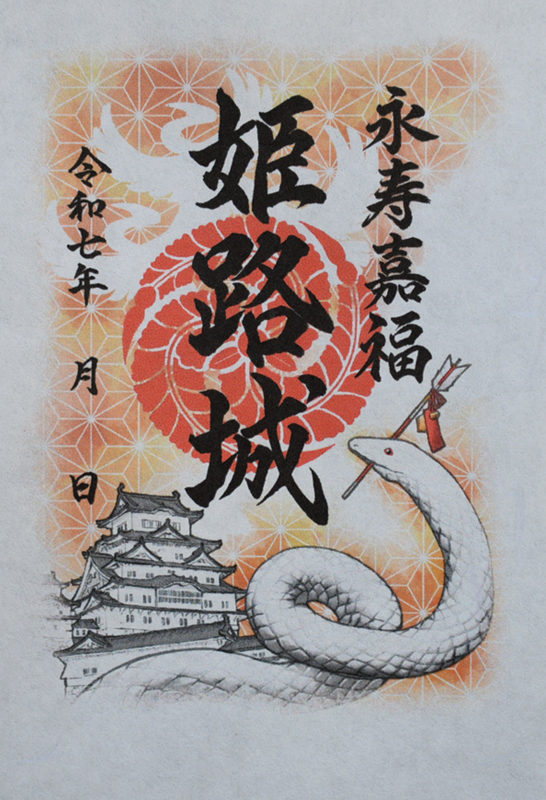 永寿嘉福
姫路城
令和七年 月 日